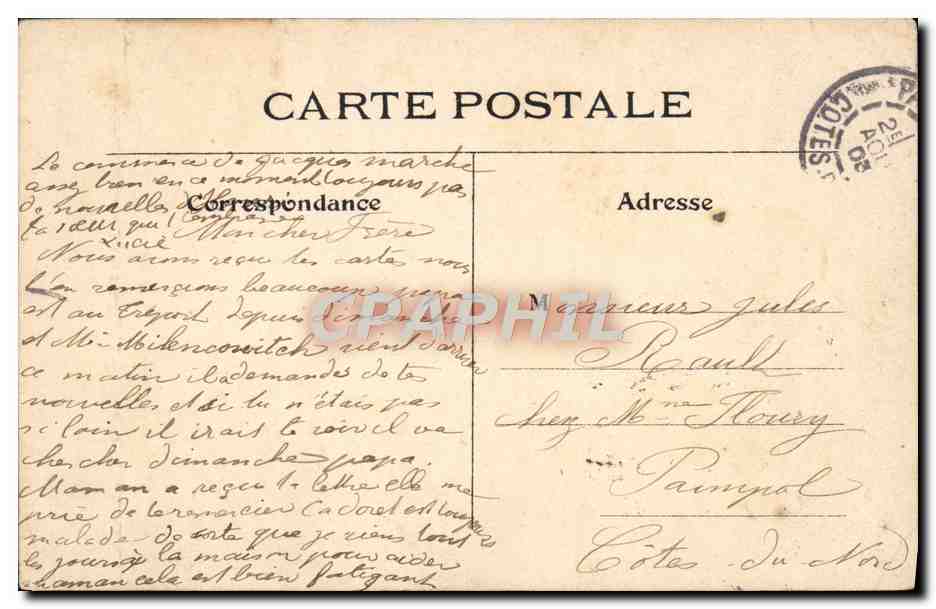 CARTE POSTALE
Le commerce de Jacques marche
assez bien en ce moment toujours pas
de nouvelles
Correspondance
ta sœur qui t'embrasse
Lucie
Mon cher Frère
Nous avons reçu tes cartes nous
t'en remercions beaucoup papa
est au Treport depuis dimanche
et Mr Milencowitch vient d'arriver
ce matin il a demandes de tes
nouvelles et si tu n'étais pas
si loin il irait te voir il va
chercher dimanche papa.
Maman a reçu ta lettre elle me
prie de te remercier Cadoret est toujours
malade de sorte que je viens tout
les jours à la maison pour aider
maman cela est bien fatigant
Adresse
Monsieur Jules
Rault
chez Mme Floury
Paimpol
Côtes du Nord
PA
2E
AOU
05
COTES
CPAPHIL